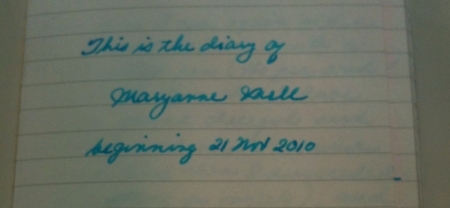 This is the diary of
Maryanne
beginning 21 Nov 2010